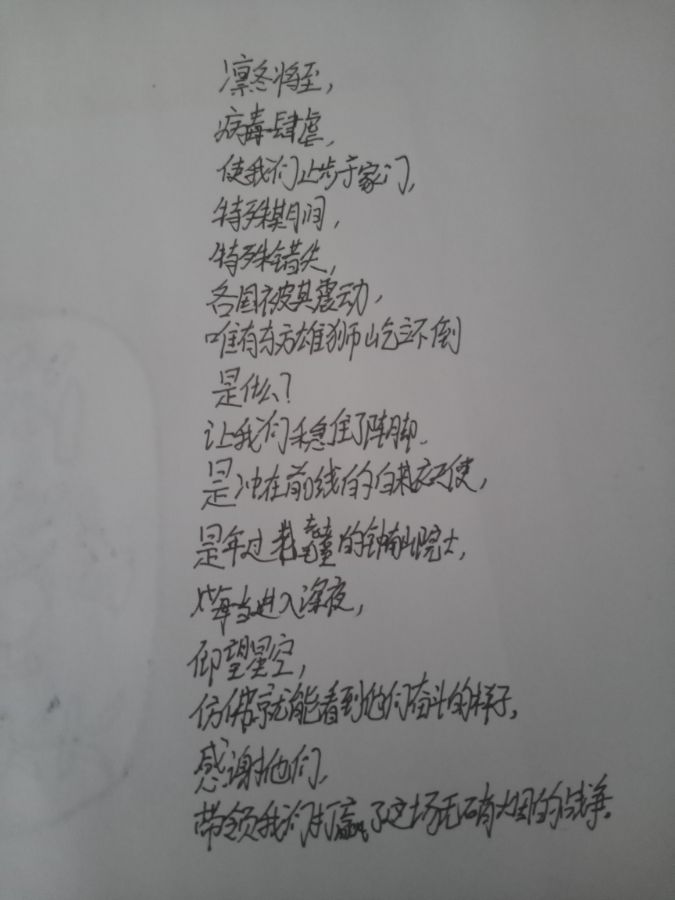 凛冬将至，
病毒肆虐，
使我们止步于家门，
特殊期间，
特殊错失，
各国被其震动，
唯有东方雄狮屹立不倒
是什么？
让我们稳住了阵脚.
是冲在前线的白衣天使，
是年过耄耋的钟南山院士，
每当进入深夜，
仰望星空，
仿佛就能看到他们奋斗的样子，
感谢他们，
带领我们打赢了这场无硝烟的战争.